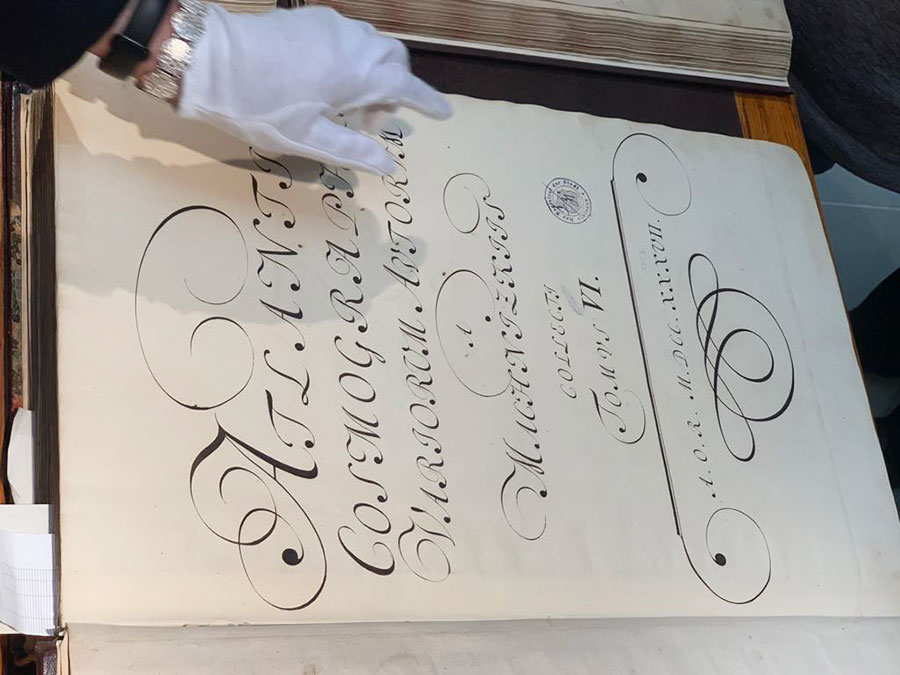 ATLANTI
COSMOGRAPH
VARIORUM AVTORUM
A
MACHNIZKIS
COLLECTI
TOMVS VI.
A.O.R. M.DCC.XXXVII.